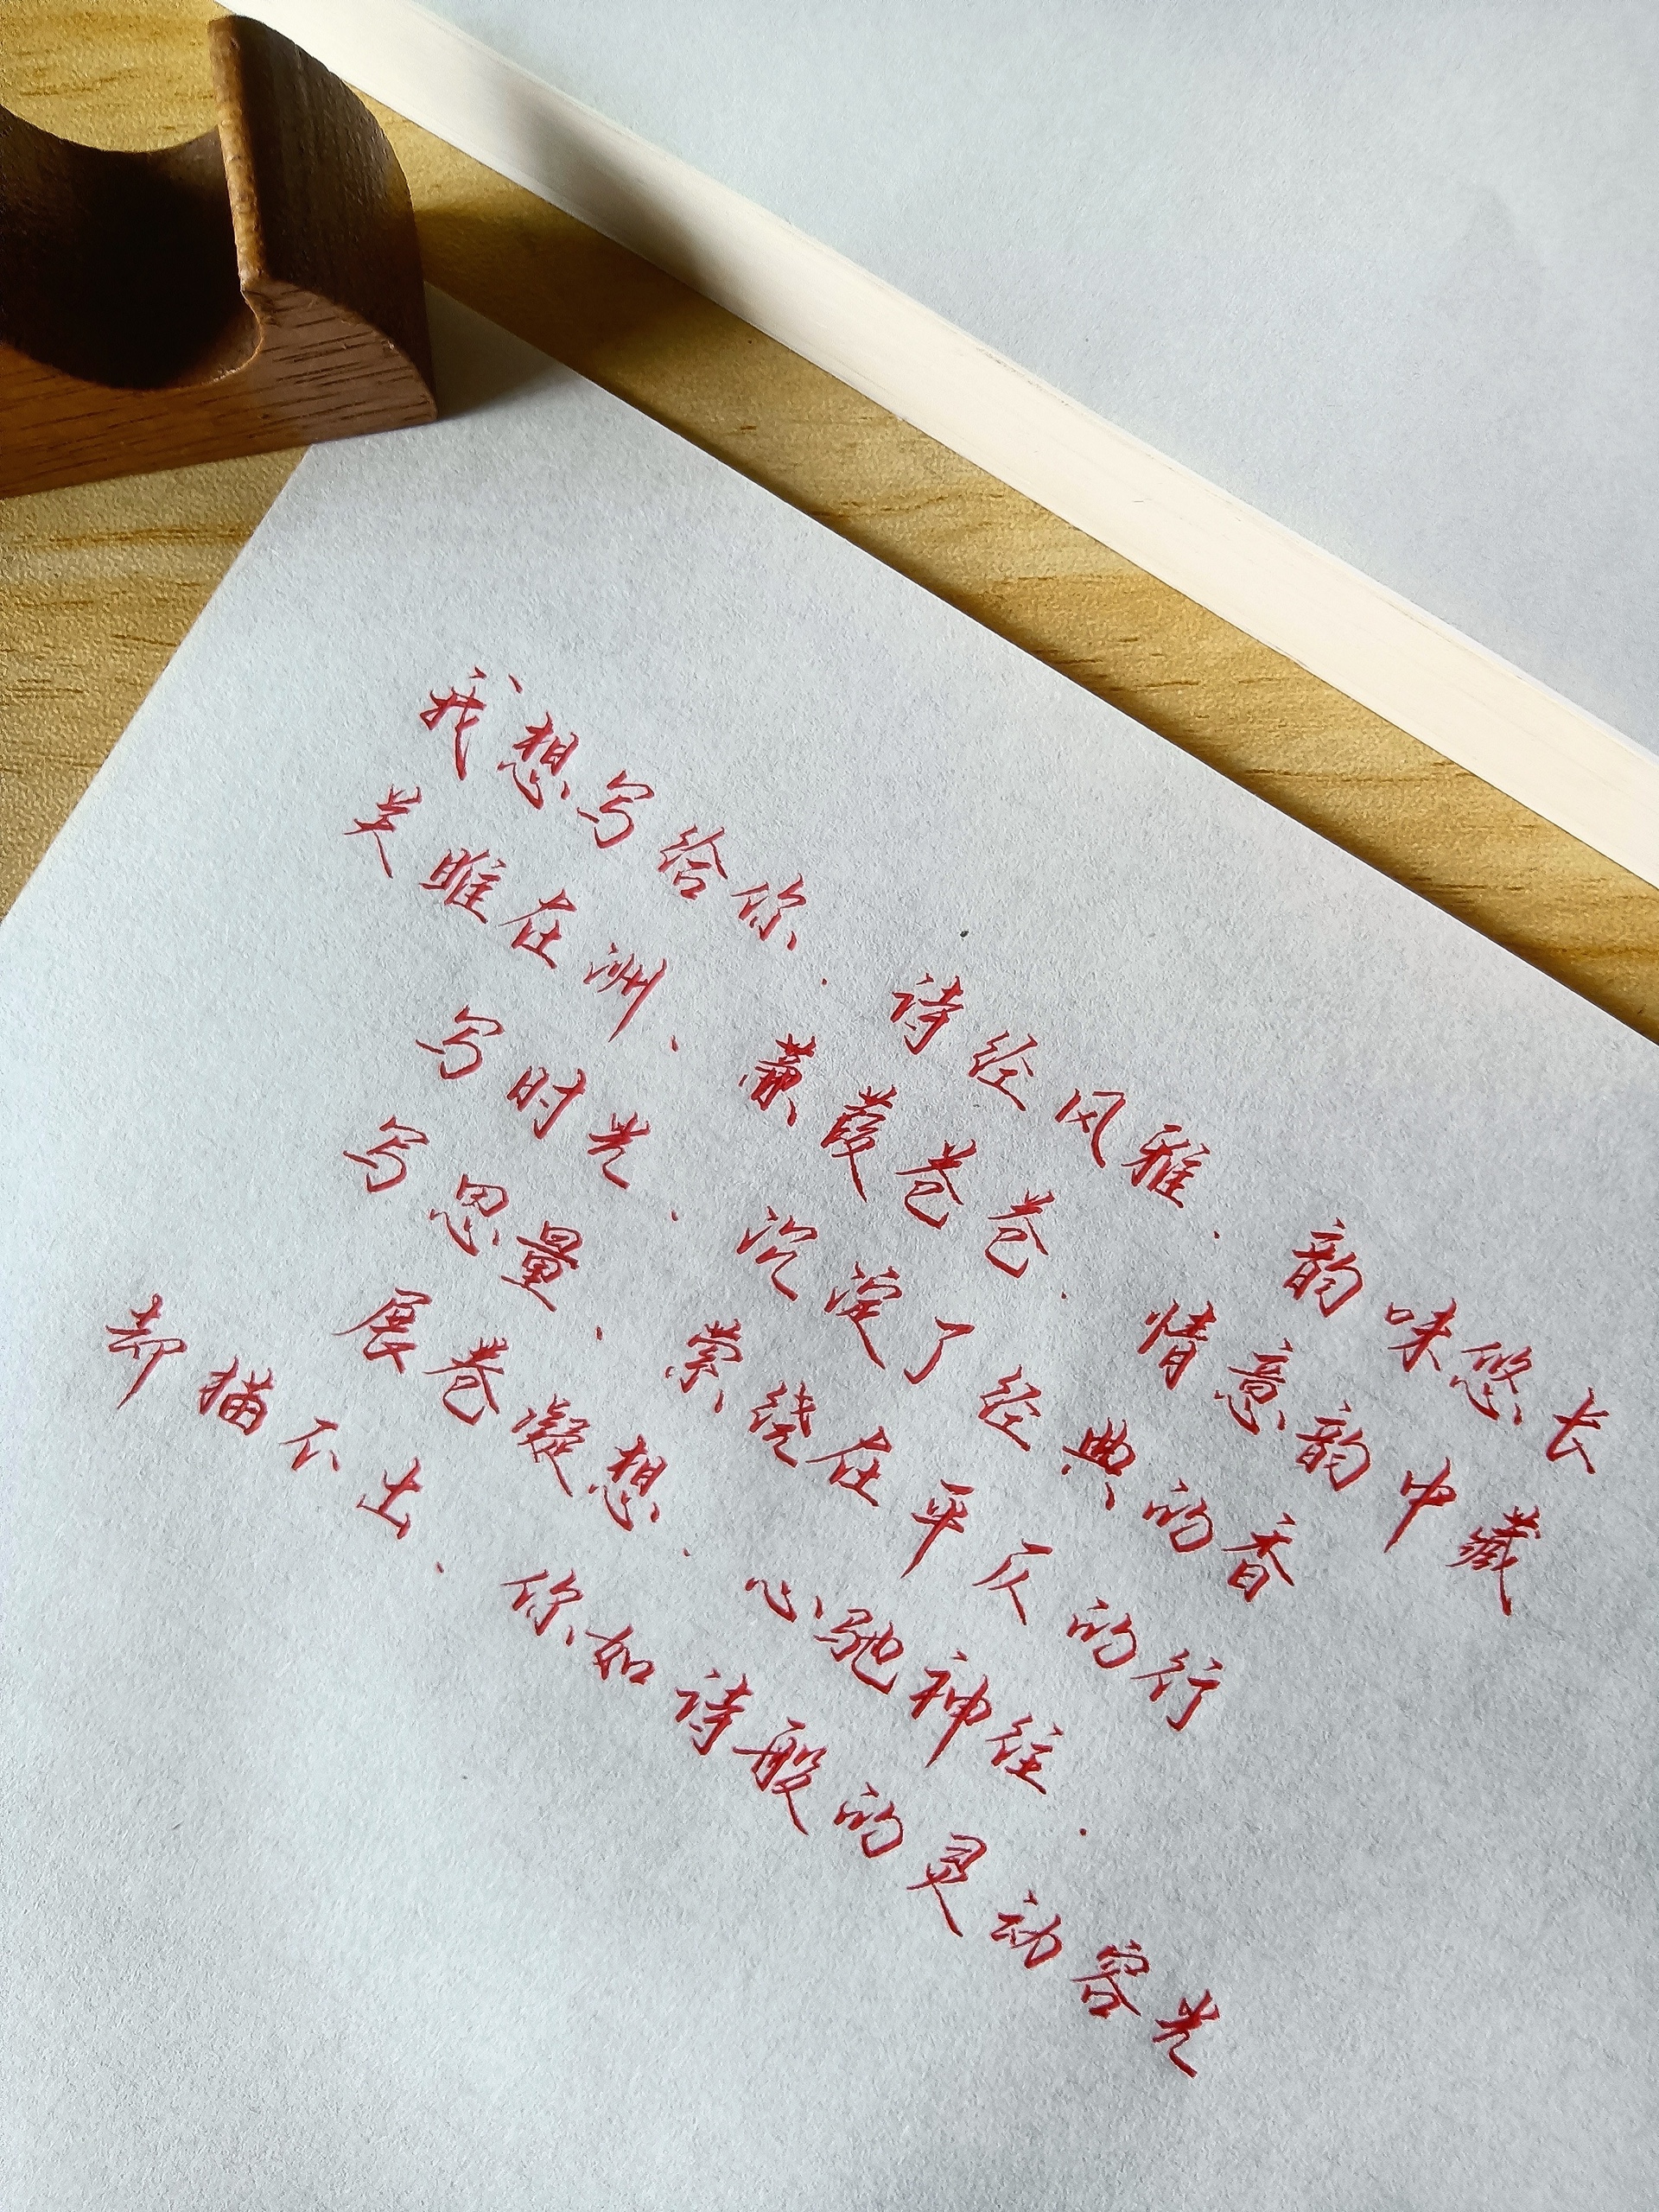 我想写给你.诗经风雅.韵味悠长
关雎在洲、蒹葭苍苍.情意韵中藏
写时光、沉淀了经典的香
写思量、萦绕在平仄的行
展卷凝想.心驰神往.
却描不出、你如诗般的灵动容光